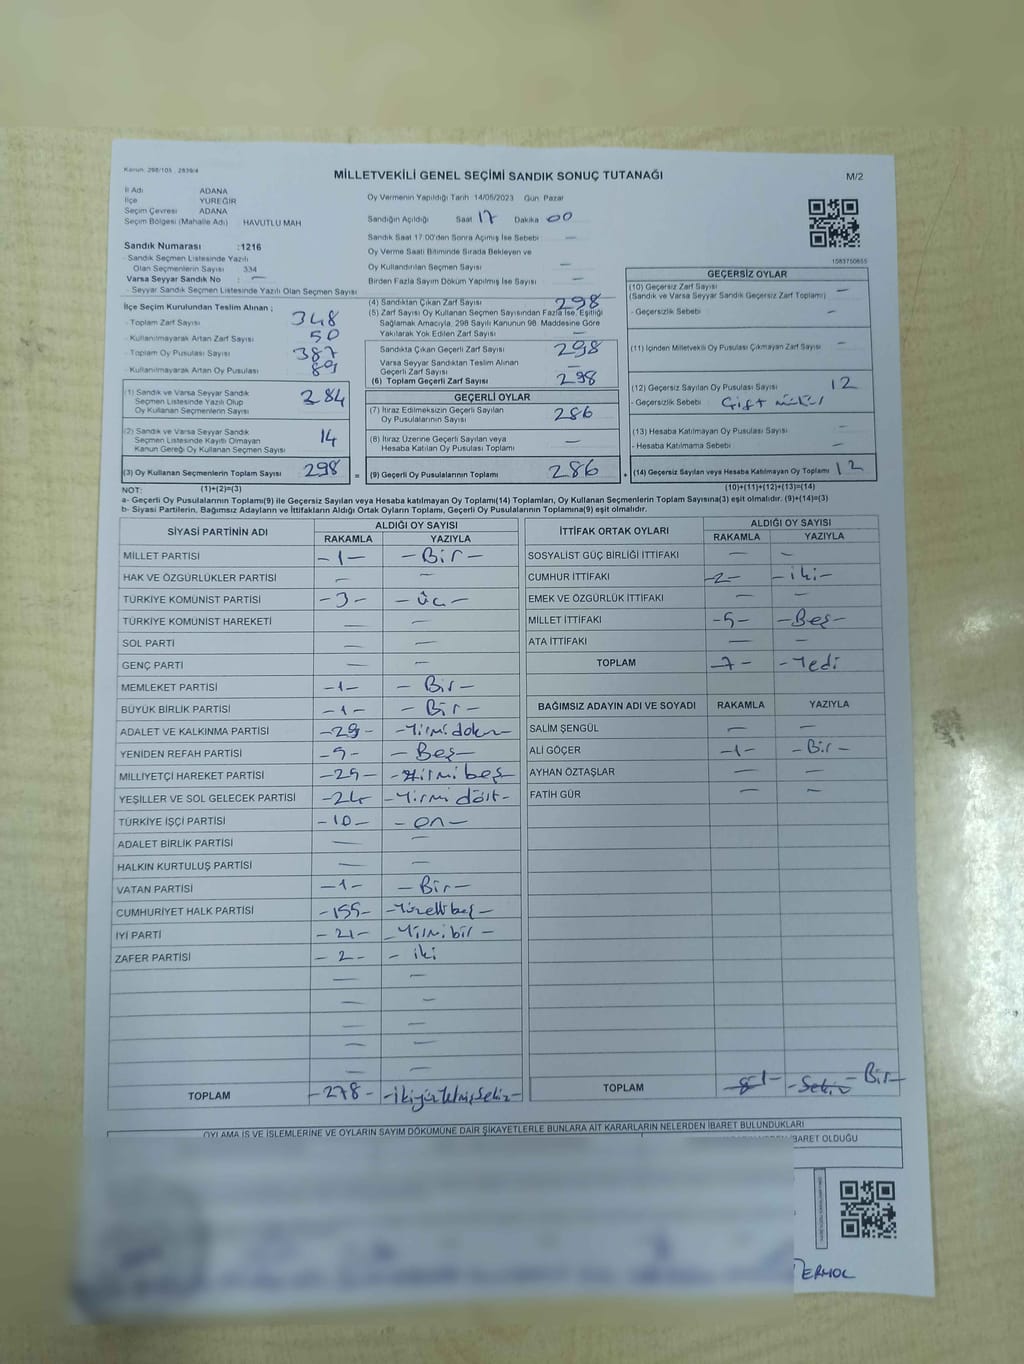 Kanun: 298/105 . 2839/4
MİLLETVEKİLİ GENEL SEÇİMİ SANDIK SONUÇ TUTANAĞI
M/2
İl Adı ADANA
İlçe YÜREĞİR
Seçim Çevresi ADANA
Seçim Bölgesi (Mahalle Adı) : HAVUTLU MAH
Oy Vermenin Yapıldığı Tarih 14/05/2023 Gün Pazar
Sandığın Açıldığı Saat 17 Dakika 00
Sandık Saat 17:00'den Sonra Açımış İse Sebebi : —
Oy Verme Saati Bitiminde Sırada Bekleyen ve
Oy Kullandırılan Seçmen Sayısı —
Birden Fazla Sayım Döküm Yapılmış İse Sayısı : —
1583750855
Sandık Numarası :1216
- Sandık Seçmen Listesinde Yazılı
Olan Seçmenlerin Sayısı 334
Varsa Seyyar Sandık No : —
- Seyyar Sandık Seçmen Listesinde Yazılı Olan Seçmen Sayısı
İlçe Seçim Kurulundan Teslim Alınan ;
- Toplam Zarf Sayısı 348
- Kullanılmayarak Artan Zarf Sayısı 50
- Toplam Oy Pusulası Sayısı 387
- Kullanılmayarak Artan Oy Pusulası 89
(1) Sandık ve Varsa Seyyar Sandık
Seçmen Listesinde Yazılı Olup
Oy Kullanan Seçmenlerin Sayısı 284
(2) Sandık ve Varsa Seyyar Sandık
Seçmen Listesinde Kayıtlı Olmayan
Kanun Gereği Oy Kullanan Seçmen Sayısı 14
(3) Oy Kullanan Seçmenlerin Toplam Sayısı 298 =
(4) Sandıktan Çıkan Zarf Sayısı 298
(5) Zarf Sayısı Oy Kullanan Seçmen Sayısından Fazla İse, Eşitliği
Sağlamak Amacıyla, 298 Sayılı Kanunun 98. Maddesine Göre
Yakılarak Yok Edilen Zarf Sayısı —
Sandıkta Çıkan Geçerli Zarf Sayısı 298
Varsa Seyyar Sandıktan Teslim Alınan
Geçerli Zarf Sayısı —
(6) Toplam Geçerli Zarf Sayısı 298
GEÇERLİ OYLAR
(7) İtiraz Edilmeksizin Geçerli Sayılan
Oy Pusulalarının Sayısı 286
(8) İtiraz Üzerine Geçerli Sayılan veya
Hesaba Katılan Oy Pusulaları Toplamı —
(9) Geçerli Oy Pusulalarının Toplamı 286 +
GEÇERSİZ OYLAR
(10) Geçersiz Zarf Sayısı
(Sandık ve Varsa Seyyar Sandık Geçersiz Zarf Toplamı) —
- Geçersizlik Sebebi : —
(11) İçinden Milletvekili Oy Pusulası Çıkmayan Zarf Sayısı —
(12) Geçersiz Sayılan Oy Pusulası Sayısı 12
- Geçersizlik Sebebi : Çift mühür
(13) Hesaba Katılmayan Oy Pusulası Sayısı —
- Hesaba Katılmama Sebebi —
(14) Geçersiz Sayılan veya Hesaba Katılmayan Oy Toplamı 12
NOT: (1)+(2)=(3) (10)+(11)+(12)+(13)=(14)
a- Geçerli Oy Pusulalarının Toplamı(9) ile Geçersiz Sayılan veya Hesaba katılmayan Oy Toplamı(14) Toplamları, Oy Kullanan Seçmenlerin Toplam Sayısına(3) eşit olmalıdır. (9)+(14)=(3)
b- Siyasi Partilerin, Bağımsız Adayların ve İttifakların Aldığı Ortak Oyların Toplamı, Geçerli Oy Pusulalarının Toplamına(9) eşit olmalıdır.
SİYASİ PARTİNİN ADI ALDIĞI OY SAYISI
RAKAMLA YAZIYLA
MİLLET PARTİSİ -1- -Bir-
HAK VE ÖZGÜRLÜKLER PARTİSİ — —
TÜRKİYE KOMÜNİST PARTİSİ -3- -üç-
TÜRKİYE KOMÜNİST HAREKETİ — —
SOL PARTİ — —
GENÇ PARTİ — —
MEMLEKET PARTİSİ -1- -Bir-
BÜYÜK BİRLİK PARTİSİ -1- -Bir-
ADALET VE KALKINMA PARTİSİ -29- -Yirmidokuz-
YENİDEN REFAH PARTİSİ -5- -Beş-
MİLLİYETÇİ HAREKET PARTİSİ -25- -Yirmibeş
YEŞİLLER VE SOL GELECEK PARTİSİ -24- -Yirmidört-
TÜRKİYE İŞÇİ PARTİSİ -10- -on-
ADALET BİRLİK PARTİSİ — —
HALKIN KURTULUŞ PARTİSİ — —
VATAN PARTİSİ -1- -Bir-
CUMHURİYET HALK PARTİSİ -155- -Yüzellibeş-
İYİ PARTİ -21- -Yirmibir-
ZAFER PARTİSİ -2- -iki
— —
— —
— —
— —
— —
TOPLAM -278- -İkiyüzYetmişSekiz-
İTTİFAK ORTAK OYLARI ALDIĞI OY SAYISI
RAKAMLA YAZIYLA
SOSYALİST GÜÇ BİRLİĞİ İTTİFAKI — —
CUMHUR İTTİFAKI -2- -iki-
EMEK VE ÖZGÜRLÜK İTTİFAKI — —
MİLLET İTTİFAKI -5- -Beş-
ATA İTTİFAKI — —
TOPLAM -7- -Yedi
BAĞIMSIZ ADAYIN ADI VE SOYADI RAKAMLA YAZIYLA
SALİM ŞENGÜL — —
ALİ GÖÇER -1- -Bir-
AYHAN ÖZTAŞLAR — —
FATİH GÜR — —
TOPLAM -8 1- -Sekiz- Bir-
OYLAMA İŞ VE İŞLEMLERİNE VE OYLARIN SAYIM DÖKÜMÜNE DAİR ŞİKAYETLERLE BUNLARA AİT KARARLARIN NELERDEN İBARET BULUNDUKLARI
BARET OLDUĞU